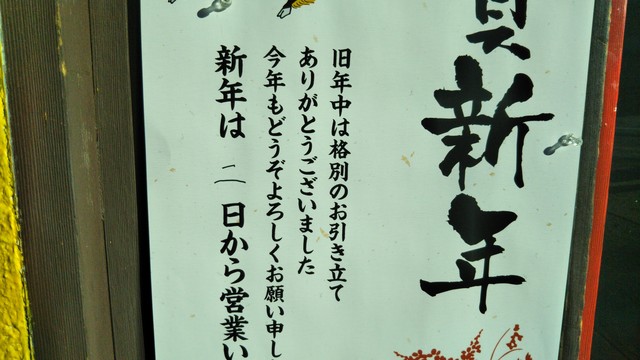 賀新年
旧年中は格別のお引き立て
ありがとうございました
今年もどうぞよろしくお願い申し
新年は 二日から営業い